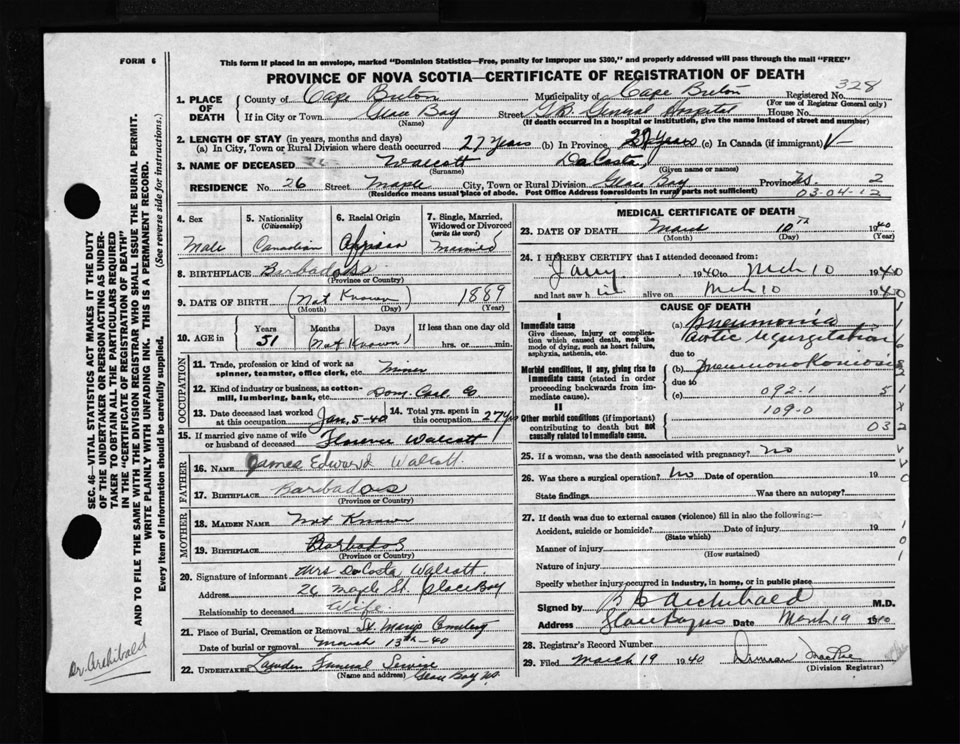 FORM 6
This form if placed in an envelope, marked "Dominion Statistics—Free, penalty for improper use $300," and properly addressed will pass through the mail "FREE"
PROVINCE OF NOVA SCOTIA—CERTIFICATE OF REGISTRATION OF DEATH
328
1. PLACE OF DEATH
County of Cape Breton Municipality of Cape Breton Registered No.
(For use of Registrar General only)
If in City or Town Glace Bay Street G.B. General Hospital House No.
(Name) (If death occurred in a hospital or institution, give the name instead of street and number)
2. LENGTH OF STAY (in years, months and days)
(a) In City, Town or Rural Division where death occurred 27 years (b) In Province 27 years (c) In Canada (if immigrant)
3. NAME OF DECEASED Walcott DaCosta
(Surname) (Given name or names)
RESIDENCE No. 26 Street Maple City, Town or Rural Division Glace Bay Province N.S. 2
(Residence means usual place of abode. Post Office Address for residents in rural parts not sufficient) 03-04-12
4. Sex
Male
5. Nationality
(Citizenship)
Canadian
6. Racial Origin
7. Single, Married, Widowed or Divorced
(write the word)
Married
8. BIRTHPLACE Barbados
(Province or Country)
9. DATE OF BIRTH (Not Known) 1889
(Month) (Day) (Year)
10. AGE
Years Months Days If less than one day old
51 (Not Known) hrs. or min.
OCCUPATION
11. Trade, profession or kind of work as spinner, teamster, office clerk, etc. Miner
12. Kind of industry or business, as cotton-mill, lumbering, bank, etc. Dom. Coal Co
13. Date deceased last worked at this occupation Jan. 5-40 14. Total yrs. spent in this occupation 27 yrs
15. If married give name of wife or husband of deceased Florence Walcott
FATHER
16. NAME James Edward Walcott
17. BIRTHPLACE Barbados
(Province or Country)
MOTHER
18. MAIDEN NAME Not Known
19. BIRTHPLACE Barbados
(Province or Country)
20. Signature of informant Mrs DaCosta Walcott
Address 26 Maple St. Glace Bay
Relationship to deceased Wife
21. Place of Burial, Cremation or Removal St. Marys Cemetery
Date of burial or removal March 13th-40
22. UNDERTAKER Funeral Service
(Name and address) Glace Bay NS
MEDICAL CERTIFICATE OF DEATH
23. DATE OF DEATH March 10th 1940
(Month) (Day) (Year)
24. I HEREBY CERTIFY that I attended deceased from:
Jany 1940 to Mch 10 1940
and last saw h im alive on Mch 10 1940
CAUSE OF DEATH
I
Immediate cause
Give disease, injury or complication which caused death, not the mode of dying, such as heart failure, asphyxia, asthenia, etc.
(a) Pneumonia
Aortic regurgitation
due to
Morbid conditions, if any, giving rise to immediate cause (stated in order proceeding backwards from immediate cause).
(b) Pneumonokoniosis
due to
(c) 092-1
II
Other morbid conditions (if important) contributing to death but not causally related to immediate cause.
109-0
032
25. If a woman, was the death associated with pregnancy? no
26. Was there a surgical operation? no Date of operation 19
State findings Was there an autopsy?
27. If death was due to external causes (violence) fill in also the following:—
Accident, suicide or homicide? Date of injury 19
(State which)
Manner of injury
(How sustained)
Nature of injury
Specify whether injury occurred in industry, in home, or in public place
Signed by Archibald M.D.
Address Glace Bay NS Date March 19 1940
28. Registrar's Record Number
29. Filed March 19 1940
(Division Registrar)
SEC. 46—VITAL STATISTICS ACT MAKES IT THE DUTY OF THE UNDERTAKER OR PERSON ACTING AS UNDERTAKER TO OBTAIN ALL THE PARTICULARS REQUIRED IN THE "CERTIFICATE OF REGISTRATION OF DEATH" AND TO FILE THE SAME WITH THE DIVISION REGISTRAR WHO SHALL ISSUE THE BURIAL PERMIT.
WRITE PLAINLY WITH UNFADING INK. THIS IS A PERMANENT RECORD.
Every item of information should be carefully supplied. (See reverse side for instructions.)
Dr. Archibald